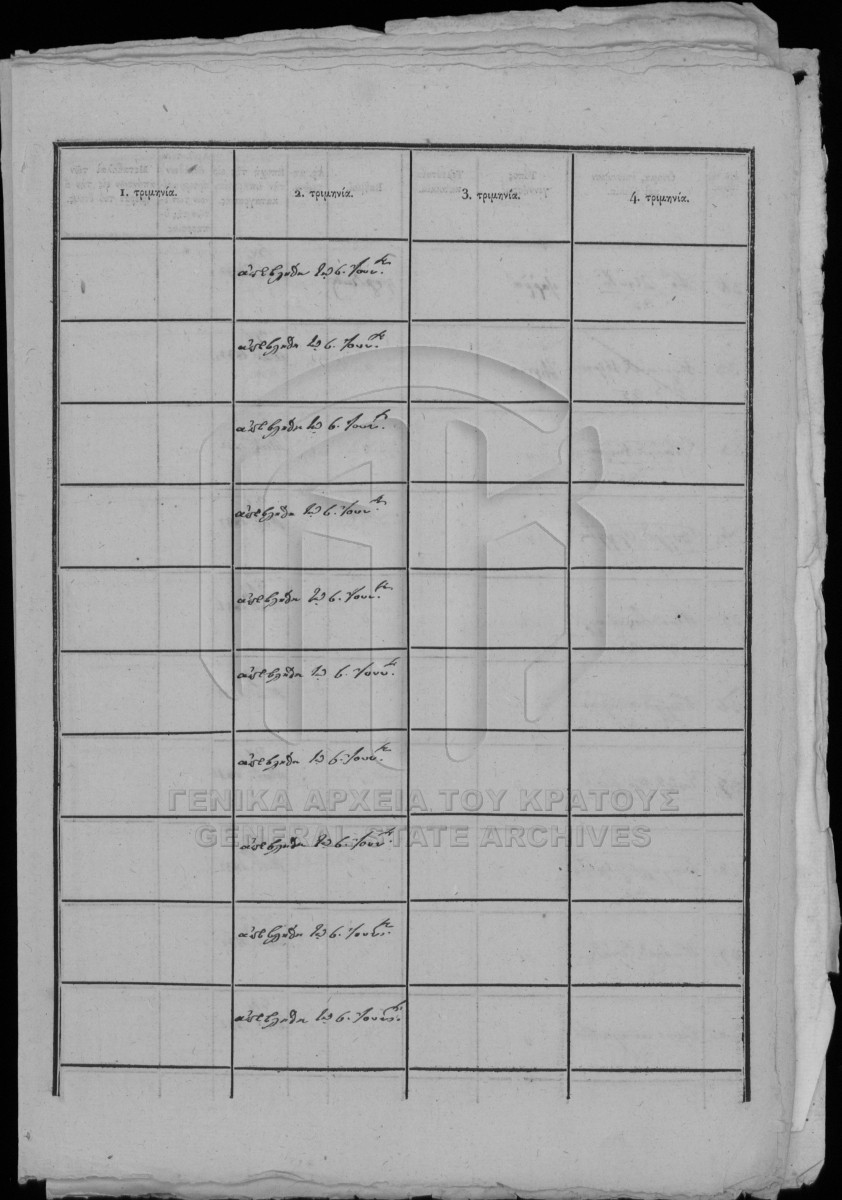 1. τριμηνία.
2. τριμηνία.
3. τριμηνία.
4. τριμηνία.
ἀπεβλήθη τῇ 6. Ἰουν.
ἀπεβλήθη τῇ 6. Ἰουν.
ἀπεβλήθη τῇ 6. Ἰουν.
ἀπεβλήθη τῇ 6. Ἰουν.
ἀπεβλήθη τῇ 6. Ἰουν.
ἀπεβλήθη τῇ 6. Ἰουν.
ἀπεβλήθη τῇ 6. Ἰουν.
ἀπεβλήθη τῇ 6. Ἰουν.
ἀπεβλήθη τῇ 6. Ἰουν.
ἀπεβλήθη τῇ 6. Ἰουν.
ΓΕΝΙΚΑ ΑΡΧΕΙΑ ΤΟΥ ΚΡΑΤΟΥΣ
GENERAL STATE ARCHIVES